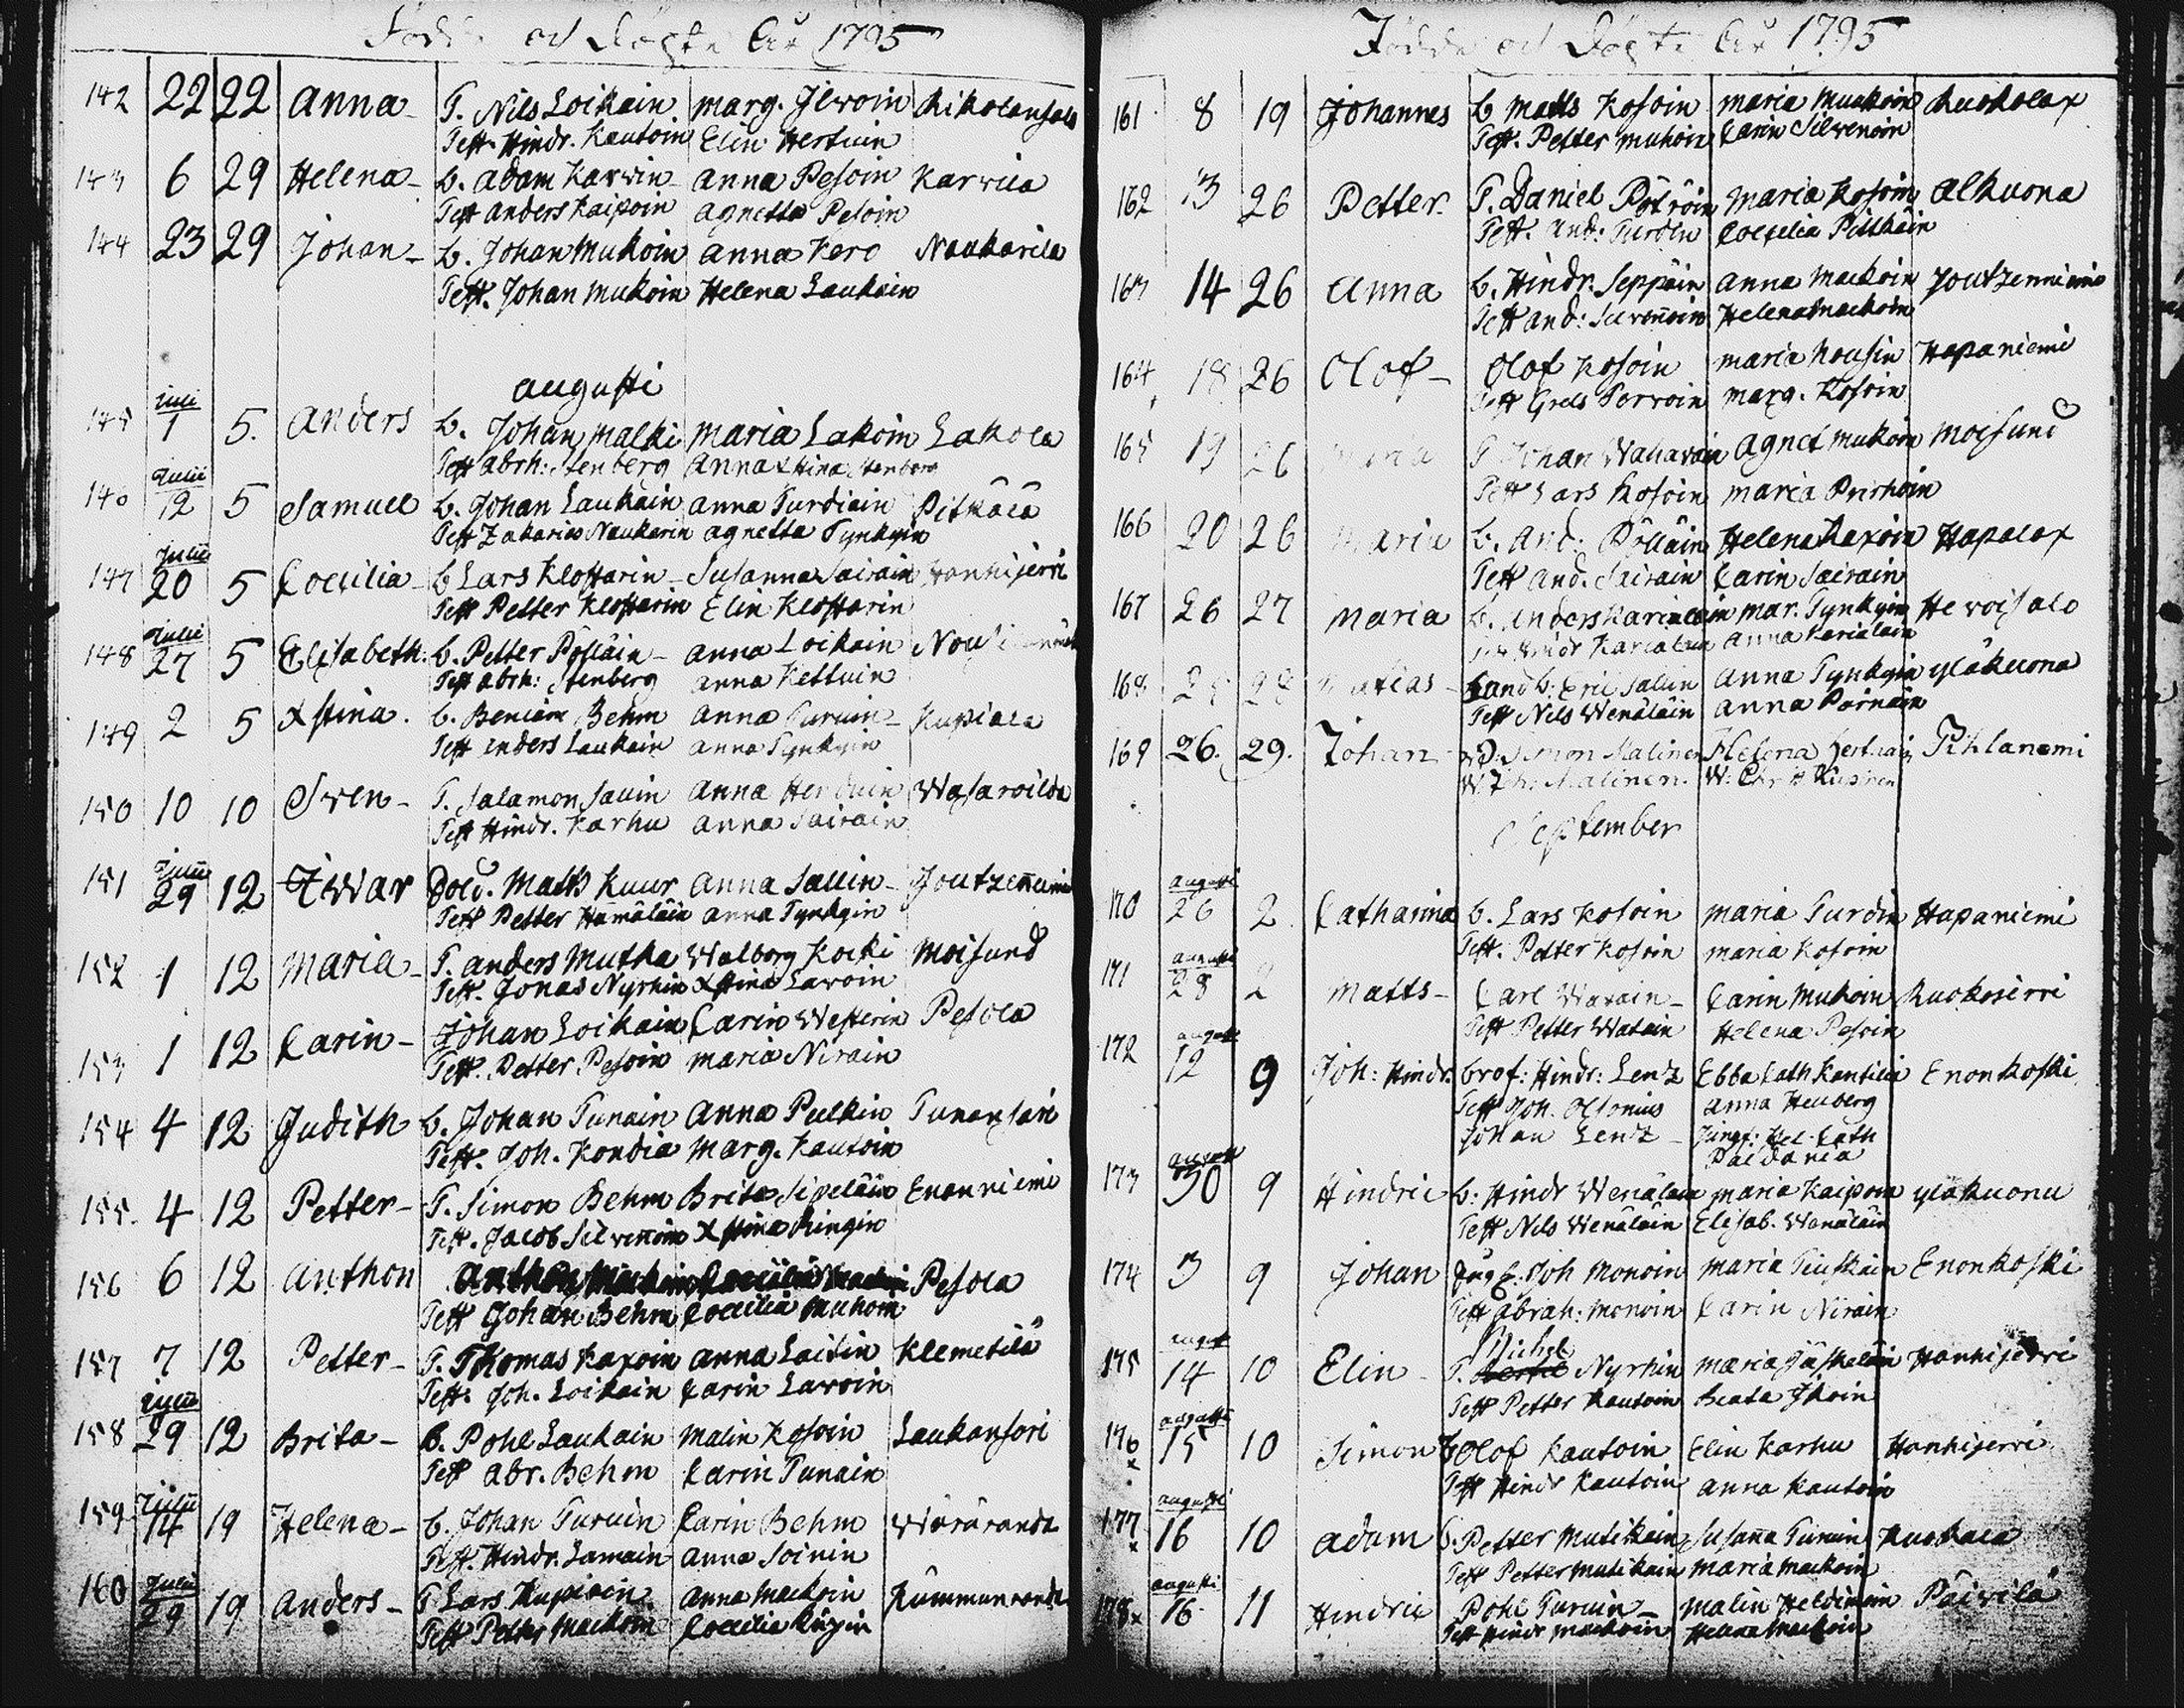 Födde och Döpte År 1795
142 22 22 Anna T. Nils Loikain Marg. Ilwoin Rikolansalo
Test. Hindr. Kautoin Elin Hertuin
143 6 29 Helena B. Adam Karwin Anna Pesoin Karwila
Test Anders Kaipoin Agnetta Pesoin
144 23 29 Johan B. Johan Mukoin Anna Kero Naukarila
Test. Johan Mukoin Helena Laukain
Augusti
145 Juli 1 5. Anders B. Johan Malki Maria Lakoin Lakola
Test Abrh: Stenberg Anna Xstina Stenberg
146 Julii 12 5 Samuel B. Johan Laukain Anna Turdiain Pitkälä
Test Zakarias Naukarin Agnetta Tynkyin
147 Julii 20 5 Coecilia B Lars Klostarin Susanna Sairain Hanhijerri
Test Petter Klostarin Elin Klostarin
148 Julii 27 5 Elisabeth. B. Petter Pöllain Anna Loikain
Test Abrh: Stenberg Anna Kettuin
149 2 5 Xstina. B. Beniam Behm Anna Turuin Kupiala
Test Anders Laukain Anna Tynkyin
150 10 10 Swen T. Salamon Sauin Anna Herduin Wasarvilda
Test Hindr. Karhu Anna Sairain
151 Julii 29 12 Iwar Sold. Matts Kuur Anna Sallin Joutzenniemi
Test Petter Hämäläin Anna Tynkyin
152 1 12 Maria T. Anders Mutka Walborg Kocki Moisund
Test. Jonas Nyrhin Xstina Lawoin
153 1 12 Carin Johan Loikain Carin Westerin Pesola
Test. Petter Pesoin Maria Nirain
154 4 12 Judith B. Johan Tunain Anna Pulkin Tunansari
Test. Joh. Kondia Marg. Kautoin
155. 4 12 Petter T. Simon Behm Brita Sipeläin Enonniemi
Test. Jacob Silvennoin Xstina Ringin
156 6 12 Anthon Pesola
Test Johan Behm Coecilia Muhoin
157 7 12 Petter T. Thomas Kaxoin Anna Laitin Klemetilä
Test. Joh. Loikain Carin Lawoin
158 Julii 29 12 Brita B. Pohl Laukain Malin Kosoin Laukansari
Test Abr. Behm Carin Tunain
159 Julii 14 19 Helena B. Johan Turuin Carin Behm Wäräranda
Test. Hindr. Lamain Anna Soinin
160 Julii 29 19 Anders T Lars Kupiain Anna Mackoin Rummunranda
Test Petter Mackoin Coecilia Ringin
Födde och Döpte År 1795
161 8 19 Johannes B Matts Kosoin Maria Muukoin Ruokolax
Test. Petter Muhoin Carin Silvenoin
162 13 26 Petter. T. Daniel Pöyröin Maria Kosoin Alkuona
Test. And: Turdin Coecilia Pitkäin
163 14 26 Anna B. Hindr. Seppäin Anna Mackoin Joutzenniemi
Test And: Silvennoin Helena Mackoin
164 18 26 Olof Olof Kosoin Maria Housin Hapaniemi
Test Grels Perwoin Marg. Kosoin
165 19 26 Maria T Johan Wahavain Agnet Mukoin Moisund
Test Lars Kosoin Maria Pesoin
166 20 26 Maria B. And: Pöllain Helena Kaxoin Hapalax
Test And. Sairain Carin Sairain
167 26 27 Maria B. Anders Karialain Mar. Tynkyin Hevoisalo
Test Hindr Karialain Anna Karialain
168 28 Mattias Landb: Eric Sallin Anna Tynkyin Yläkuona
Test Nils Wenäläin Anna Pärnäin
169 26. 29. Johan D. Simon Malinen Helena Hertuain Pihlanemi
W. Joh: Malinen. W. Chr
September
170 Augusti 26 2 Catharina B. Lars Kosoin Maria Turdin Hapaniemi
Test. Petter Kosoin Maria Kosoin
171 Augusti 28 2 Matts Carl Watain Carin Mukoin Ruokojerri
Test Petter Watain Helena Pesoin
172 August 12 9 Joh: Hindr. Prof: Hindr: Lenz Ebba Cath Kantelia Enonkoski
Test Joh. Olsonius Anna Heuberg
Johan Lentz Jungf: Hel Cath
Paldania
173 August 30 9 Hindric B: Hindr Wenäläin Maria Kaipoin Yläkuona
Test Nils Wenäläin Elisab. Wenäläin
174 3 9 Johan Joh Monoin Maria Tiuskain Enonkoski
Test Abrah: Monoin Carin Nirain
175 August 14 10 Elin T. Michel Nyrhin Maria Jäskeläin Hanhijerri
Test Petter Kautoin Beata Ikoin
176 x Augusti 15 10 Simon B Olof Kautoin Elin Karhu Hanhijerri
Test Hindr Kautoin Anna Kautoin
177 x Augusti 16 10 Adam B. Petter Mutikain Susana Turuin Ruokola
Test Petter Mutikain Maria Mackoin
178 x Augusti 16 11 Hindric Pohl Turuin Malin Heldimoin Päivilä
Test Hindr Mackoin Helena Mackoin